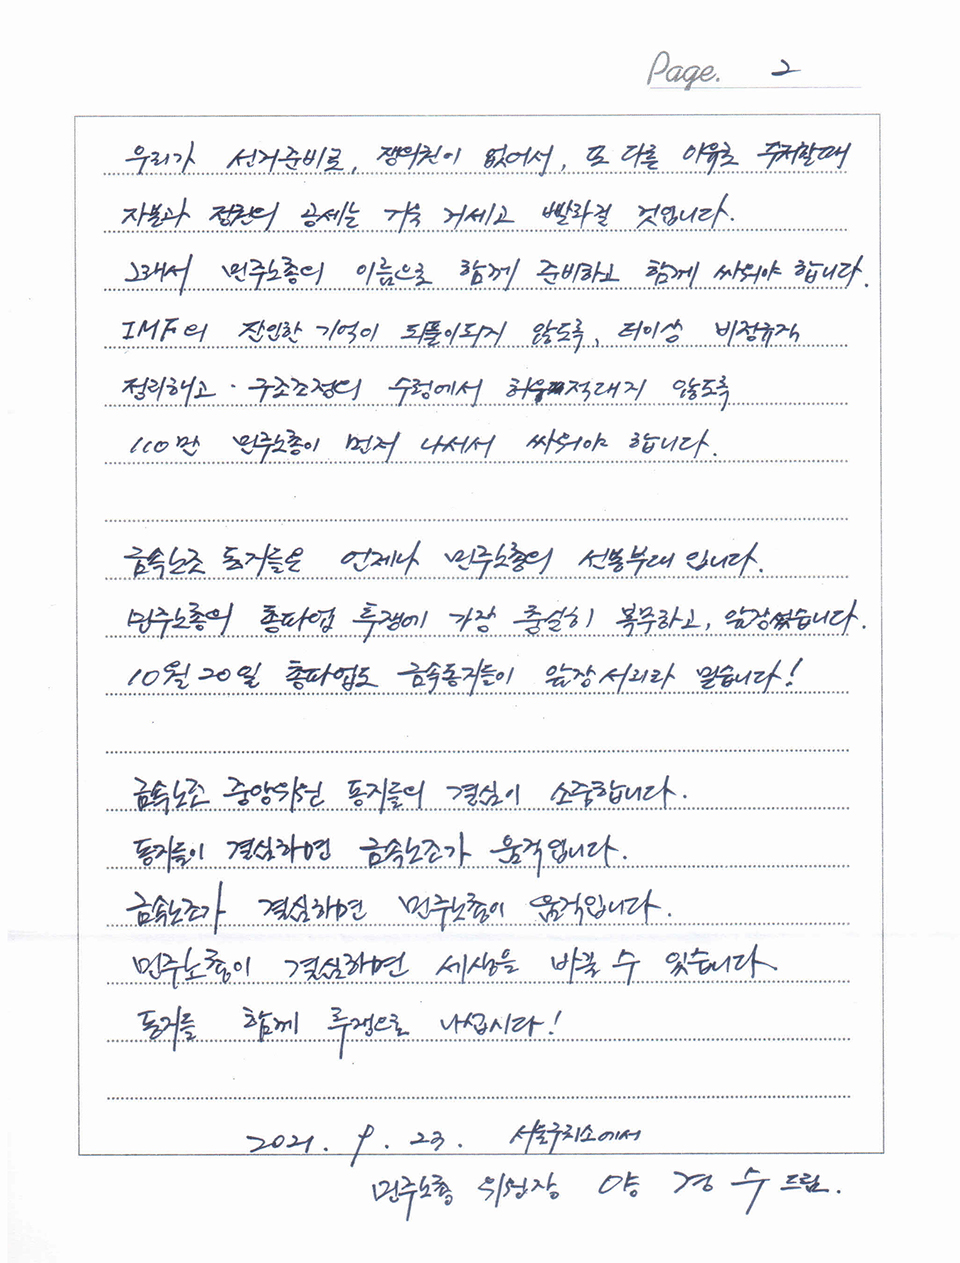 Page. 2
우리가 선거준비로, 쟁의권이 없어서, 또 다른 이유로 주저할때
자본과 정권의 공세는 더욱 거세고 빨라질 것입니다.
그래서 민주노총의 이름으로 함께 준비하고 함께 싸워야 합니다.
IMF의 잔인한 기억이 되풀이되지 않도록, 더이상 비정규직
정리해고 · 구조조정의 수렁에서 허우적대지 않도록
110만 민주노총이 먼저 나서서 싸워야 합니다.
금속노조 동지들은 언제나 민주노총의 선봉부대 입니다.
민주노총의 총파업 투쟁에 가장 충실히 복무하고, 앞장섰습니다.
10월 20일 총파업도 금속동지들이 앞장 서리라 믿습니다!
금속노조 중앙위원 동지들의 결심이 소중합니다.
동지들이 결심하면 금속노조가 움직입니다.
금속노조가 결심하면 민주노총이 움직입니다.
민주노총이 결심하면 세상을 바꿀 수 있습니다.
동지들 함께 투쟁으로 나섭시다!
2021. 9. 23. 서울구치소에서
민주노총 위원장 양 경 수 드림.